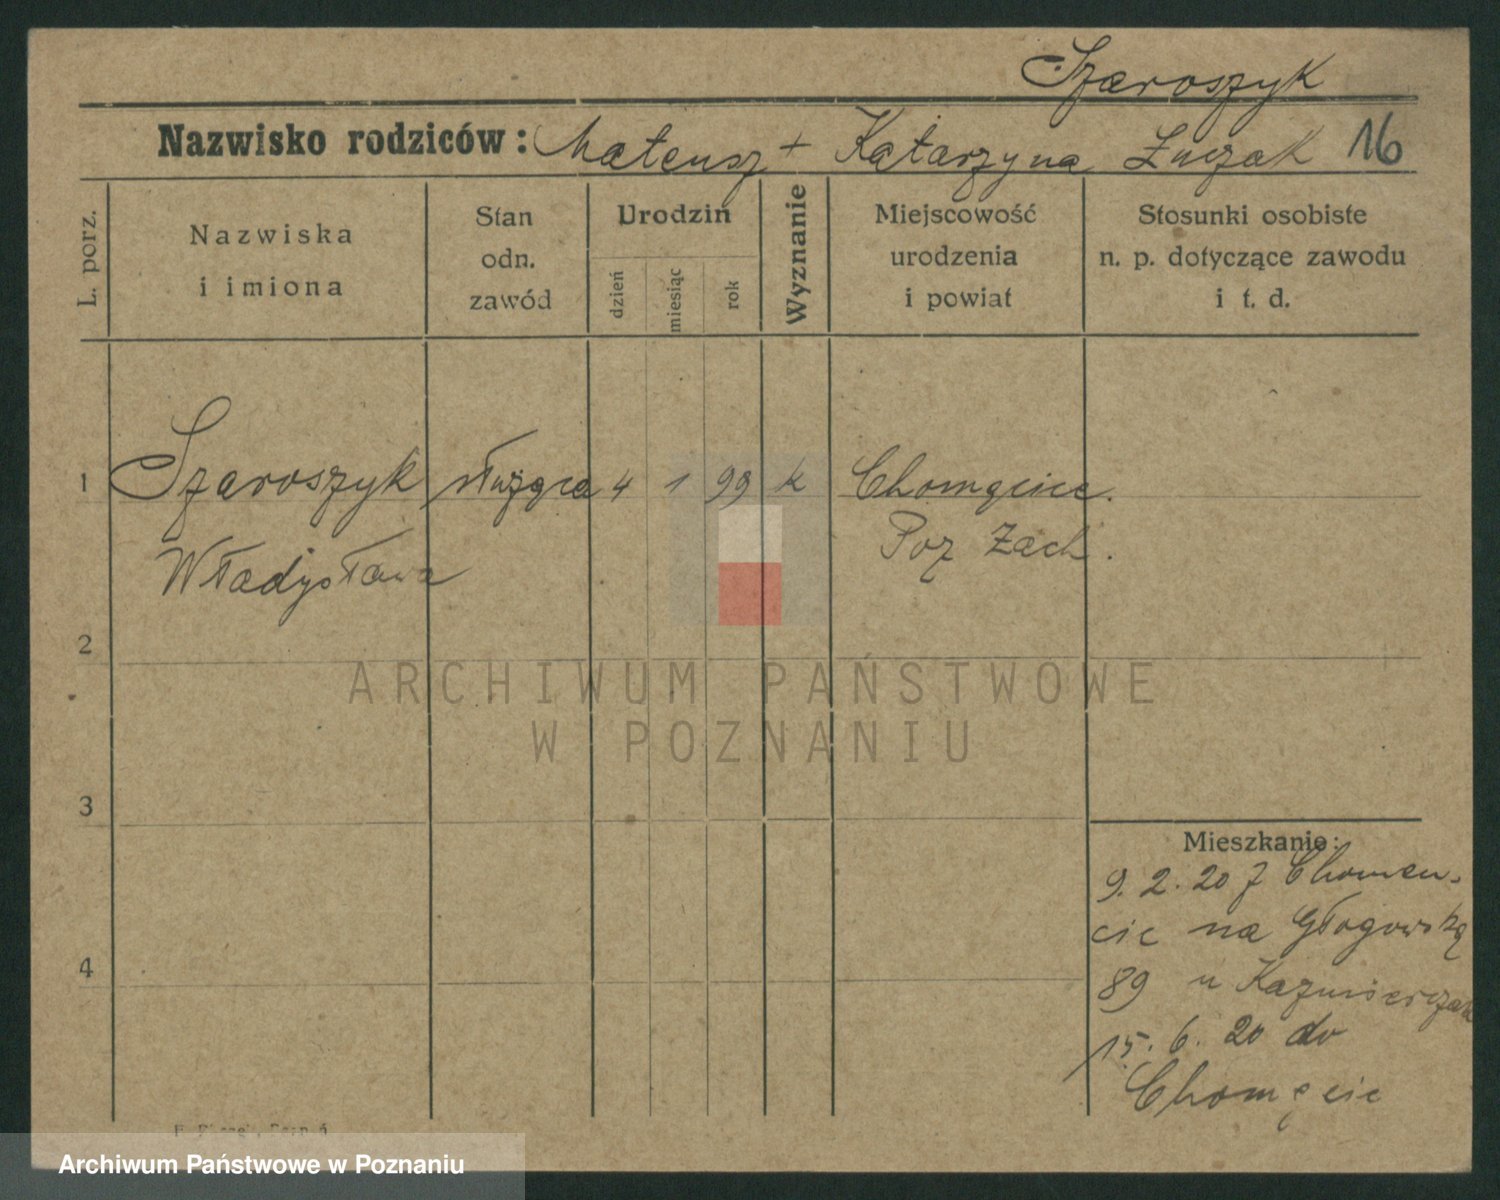 Szaroszyk
Nazwisko rodziców: Mateusz + Katarzyna Łuczak 16
L. porz.
Nazwiska
i imiona
Stan
odn.
zawód
Urodzin
dzień
miesiąc
rok
Wyznanie
Miejscowość
urodzenia
i powiat
Stosunki osobiste
n. p. dotyczące zawodu
i t. d.
1 Szaroszyk służąca 4 1 99 k Chomęcice.
Władysława Poz Zach.
2
ARCHIWUM PAŃSTWOWE
W POZNANIU
3
Mieszkanie:
9. 2. 20 z Chomen-
cic na Głogowską
4
89 u Kazmierczak
15. 6. 20 do
Chomęcic
Archiwum Państwowe w Poznaniu